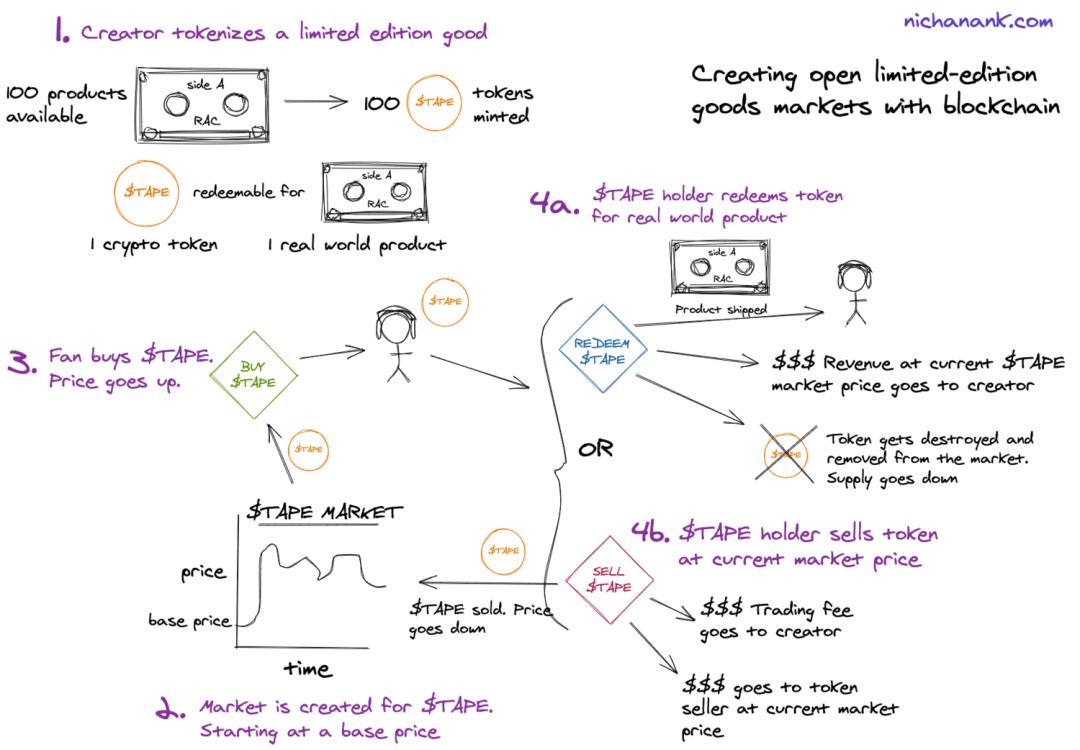 nichanank.com
Creating open limited-edition
goods markets with blockchain
1. Creator tokenizes a limited edition good
100 products
available
side A
RAC
100 $TAPE tokens
minted
$TAPE redeemable for
side A
RAC
1 crypto token
1 real world product
2. Market is created for $TAPE.
Starting at a base price
$TAPE MARKET
price
base price
time
3. Fan buys $TAPE.
Price goes up.
$TAPE
BUY
$TAPE
$TAPE
OR
4a. $TAPE holder redeems token
for real world product
REDEEM
$TAPE
side A
RAC
Product shipped
$$$ Revenue at current $TAPE
market price goes to creator
$TAPE
Token gets destroyed and
removed from the market.
Supply goes down
4b. $TAPE holder sells token
at current market price
SELL
$TAPE
$TAPE
$TAPE sold. Price
goes down
$$$ Trading fee
goes to creator
$$$ goes to token
seller at current market
price